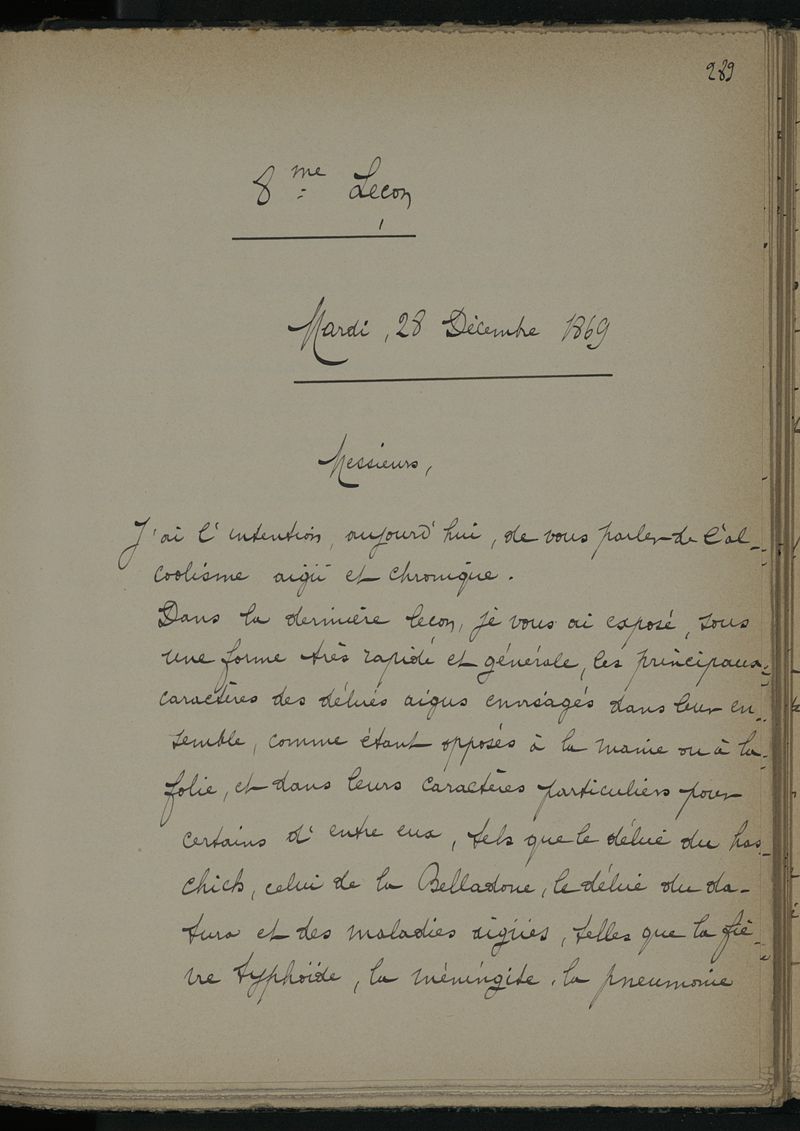 289
8me Leçon
Mardi, 28 Décembre 1869
Messieurs,
J'ai l'intention, aujourd'hui, de vous parler de l'al-
coolisme aigü et chronique.
Dans la dernière leçon, je vous ai exposé, sous
une forme très rapide et générale, les principaux
caractères des délires aigus envisagés dans leur en-
semble, comme étant opposés à la manie ou à la
folie, et dans leurs caractères particuliers pour
certains d'entre eux, tels que le délire du has-
chich, celui de la Belladone, le délire du da-
tura et des maladies aigües, telles que la fiè-
vre typhoïde, la méningite, la pneumonie